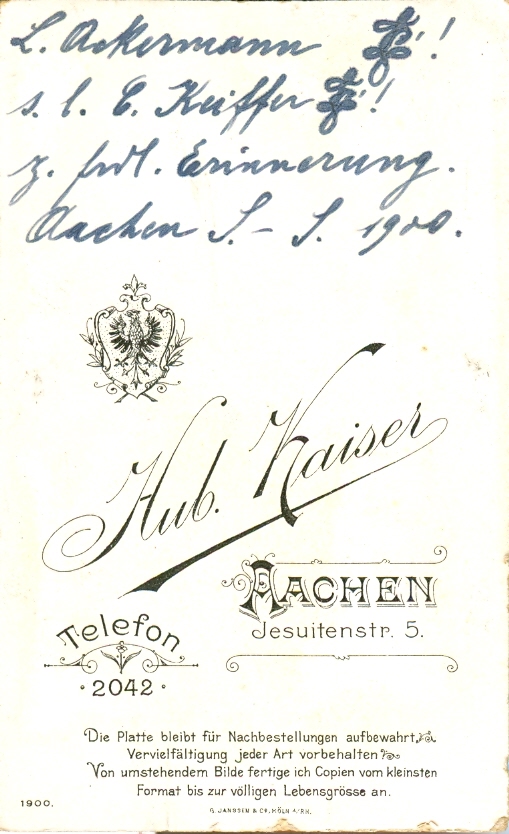 L. Ackermann !
s. l. E. Keiffer !
z. frdl. Erinnerung.
Aachen S.–S. 1900.
Hub. Kaiser
AACHEN
Jesuitenstr. 5.
Telefon
· 2042 ·
Die Platte bleibt für Nachbestellungen aufbewahrt.
Vervielfältigung jeder Art vorbehalten
Von umstehendem Bilde fertige ich Copien vom kleinsten
Format bis zur völligen Lebensgrösse an.
1900.
G. JANSSEN & Co. KÖLN A/RH.